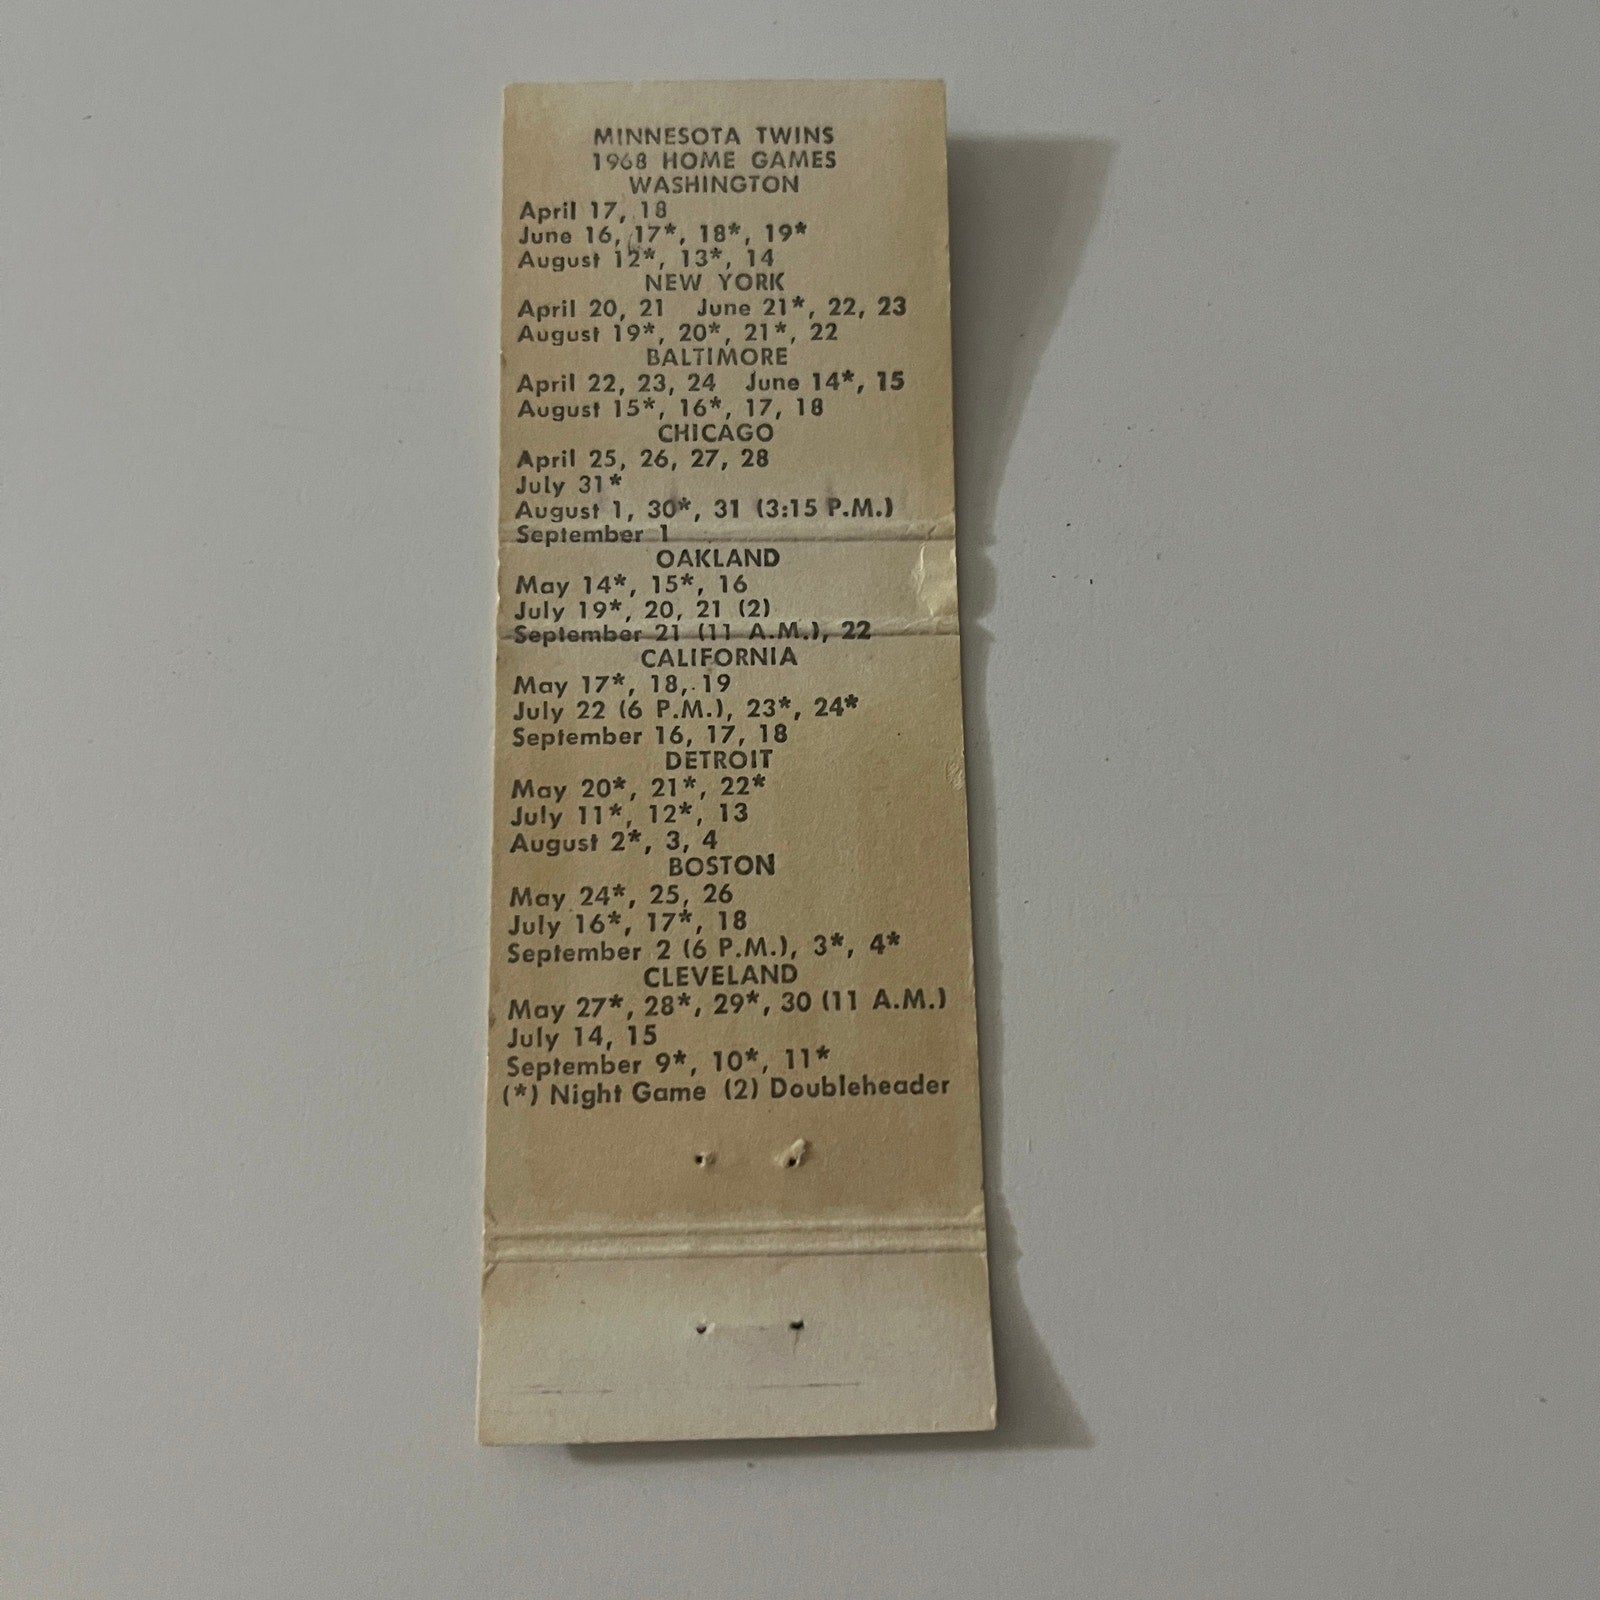 MINNESOTA TWINS
1968 HOME GAMES
WASHINGTON
April 17, 18
June 16, 17*, 18*, 19*
August 12*, 13*, 14
NEW YORK
April 20, 21 June 21*, 22, 23
August 19*, 20*, 21*, 22
BALTIMORE
April 22, 23, 24 June 14*, 15
August 15*, 16*, 17, 18
CHICAGO
April 25, 26, 27, 28
July 31*
August 1, 30*, 31 (3:15 P.M.)
September 1
OAKLAND
May 14*, 15*, 16
July 19*, 20, 21 (2)
September 21 (11 A.M.), 22
CALIFORNIA
May 17*, 18, 19
July 22 (6 P.M.), 23*, 24*
September 16, 17, 18
DETROIT
May 20*, 21*, 22*
July 11*, 12*, 13
August 2*, 3, 4
BOSTON
May 24*, 25, 26
July 16*, 17*, 18
September 2 (6 P.M.), 3*, 4*
CLEVELAND
May 27*, 28*, 29*, 30 (11 A.M.)
July 14, 15
September 9*, 10*, 11*
(*) Night Game (2) Doubleheader